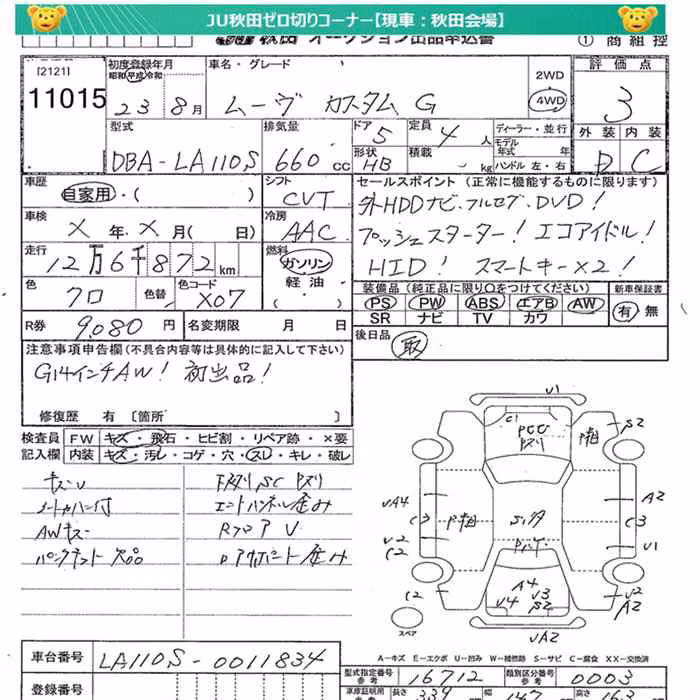 JU秋田ゼロ切りコーナー【現車：秋田会場】
オークション出品申込書 ① 商組控
[2121] 初度登録年月 車名・グレード 評価点
11015 昭和 平成 令和 2WD
23 8月 ムーヴ カスタム G 4WD 3
型式 排気量 ドア 5 定員 4 人 ディーラー・並行 外装 内装
モデル年式 年式
DBA-LA110S 660 cc 形状 HB 積載 kg ハンドル 左・右 D C
車歴 シフト セールスポイント (正常に機能するものに限ります)
自家用・( ) CVT 外HDDナビ.フルセグ.DVD!
車検 冷房 プッシュスターター! エコアイドル!
X 年 X 月( 日) AAC HID! スマートキー×2!
走行 燃料 装備品 (純正品に限り○をつけてください) 新車保証書
12万6千872km ガソリン PS PW ABS エアB AW 有 無
色 色替 色コード 軽油 SR ナビ TV カワ
クロ X07 ( ) 後日品 取
R券 9,080 円 名変期限 月 日
注意事項申告欄(不具合内容等は具体的に記入して下さい)
G14インチAW! 初出品!
修復歴 有 〔箇所 〕
検査員 FW キズ・飛石・ヒビ割・リペア跡・×要
記入欄 内装 キズ・汚レ・コゲ・穴・スレ・キレ・破レ
キズU
シートカバー付 エンドパネル歪み
AWキズ Rフロア V
パンクキット欠品
V1
C1 S2
VA4 A2
C3 C3
V2 V1
C2
C2 A4 V3 V2
V4 S2 A2
VA2
スペア
A－キズ E－エクボ U－凹み W－補修跡 S－サビ C－腐食 XX－交換済
車台番号 LA110S-0011834 型式指定番号 参考 16712 類別区分番号 参考 0003
登録番号 車庫証明用 長さ 339